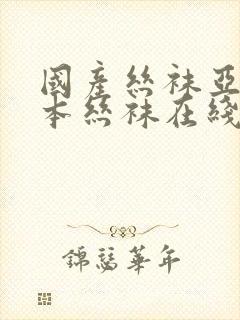 國產絲袜亞
本絲袜在綫
錦瑟華年